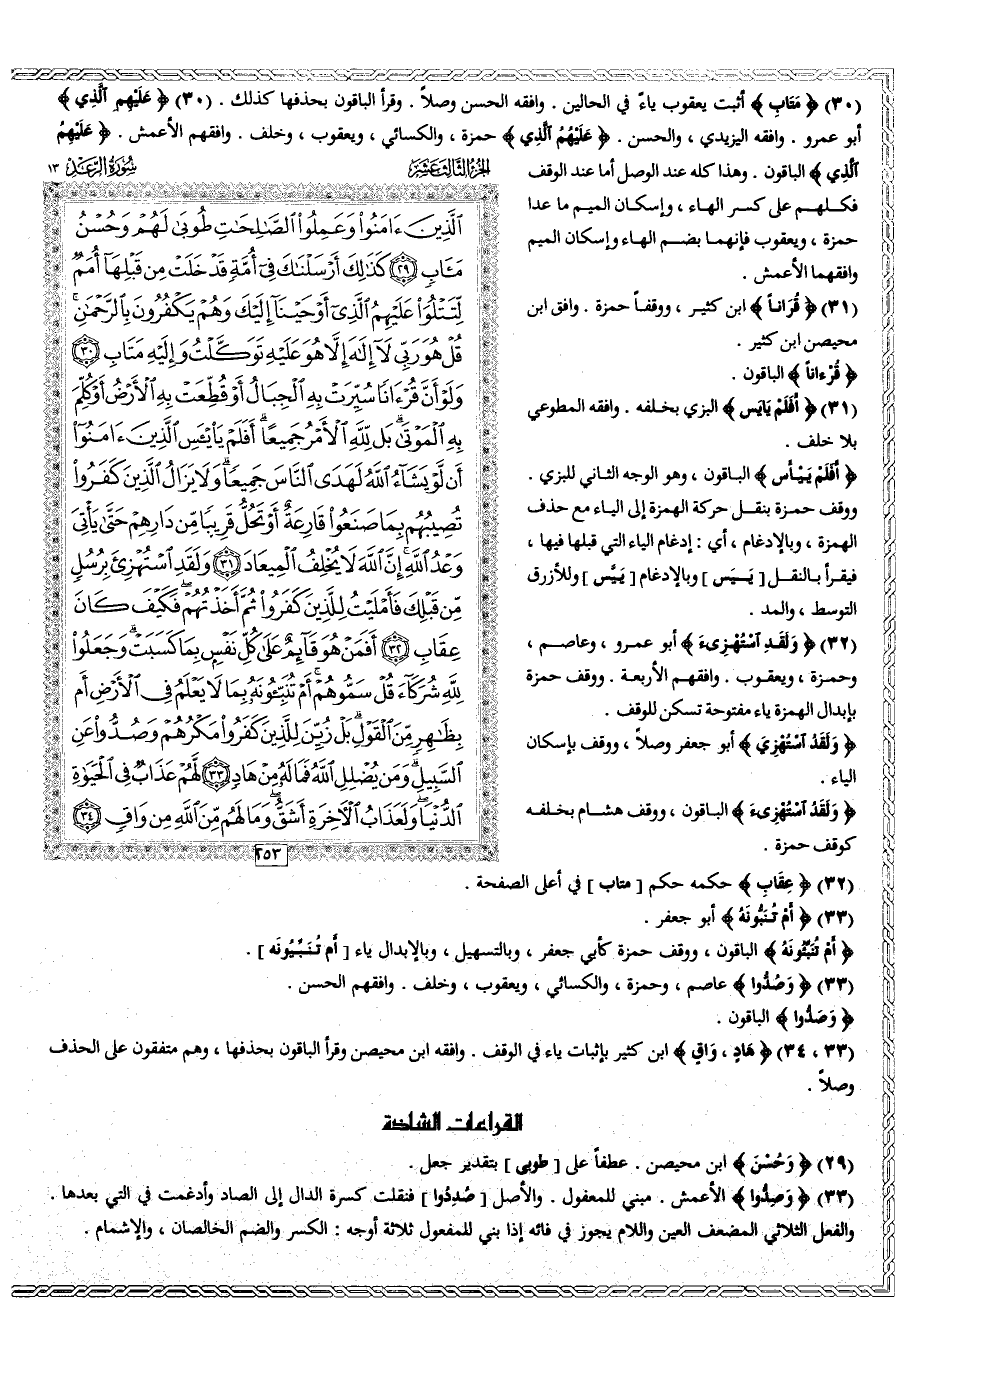 (٣٠) ﴿ مَتَابِ ﴾ أثبت يعقوب ياءً في الحالين . وافقه الحسن وصلاً . وقرأ الباقون بحذفها كذلك . (٣٠) ﴿ عَلَيْهِمِ الَّذِي ﴾
أبو عمرو . وافقه اليزيدي ، والحسن . ﴿ عَلَيْهُمُ الَّذِي ﴾ حمزة ، والكسائي ، ويعقوب ، وخلف . وافقهم الأعمش . ﴿ عَلَيْهِمُ
الَّذِي ﴾ الباقون . وهذا كله عند الوصل أما عند الوقف
فكلهم على كسر الهاء ، وإسكان الميم ما عدا
حمزة ، ويعقوب فإنهما بضم الهاء وإسكان الميم
وافقهما الأعمش .
(٣١) ﴿ قُرَاناً ﴾ ابن كثير ، ووقفاً حمزة . وافق ابن
محيصن ابن كثير .
﴿ قُرْءاناً ﴾ الباقون .
(٣١) ﴿ أَفَلَمْ يَايَسِ ﴾ البزي بخلفه . وافقه المطوعي
بلا خلف .
﴿ أَفَلَمْ يَيْأَسِ ﴾ الباقون ، وهو الوجه الثاني للبزي .
ووقف حمزة بنقل حركة الهمزة إلى الياء مع حذف
الهمزة ، وبالإدغام ، أي : إدغام الياء التي قبلها فيها ،
فيقرأ بالنقل [ يَيَس ] وبالإدغام [ يَيَّس ] وللأزرق
التوسط ، والمد .
(٣٢) ﴿ وَلَقَدِ اسْتُهْزِىءَ ﴾ أبو عمرو ، وعاصم ،
وحمزة ، ويعقوب . وافقهم الأربعة . ووقف حمزة
بإبدال الهمزة ياء مفتوحة تسكن للوقف .
﴿ وَلَقَدُ اسْتُهْزِيَ ﴾ أبو جعفر وصلاً ، ووقف بإسكان
الياء .
﴿ وَلَقَدُ اسْتُهْزِىءَ ﴾ الباقون ، ووقف هشام بخلفه
كوقف حمزة .
الجزء الثالث عشر
سورة الرعد ١٣
الَّذِينَ ءَامَنُوا۟ وَعَمِلُوا۟ الصَّالِحَاتِ طُوبَىٰ لَهُمْ وَحُسْنُ
مَـَٔابٍ ﴿٢٩﴾ كَذَٰلِكَ أَرْسَلْنَاكَ فِىٓ أُمَّةٍ قَدْ خَلَتْ مِن قَبْلِهَآ أُمَمٌ
لِّتَتْلُوَا۟ عَلَيْهِمُ الَّذِىٓ أَوْحَيْنَآ إِلَيْكَ وَهُمْ يَكْفُرُونَ بِالرَّحْمَٰنِ ۚ
قُلْ هُوَ رَبِّى لَآ إِلَٰهَ إِلَّا هُوَ عَلَيْهِ تَوَكَّلْتُ وَإِلَيْهِ مَتَابِ ﴿٣٠﴾
وَلَوْ أَنَّ قُرْءَانًا سُيِّرَتْ بِهِ الْجِبَالُ أَوْ قُطِّعَتْ بِهِ الْأَرْضُ أَوْ كُلِّمَ
بِهِ الْمَوْتَىٰ ۗ بَل لِّلَّهِ الْأَمْرُ جَمِيعًا ۗ أَفَلَمْ يَا۟يْـَٔسِ الَّذِينَ ءَامَنُوٓا۟
أَن لَّوْ يَشَآءُ اللَّهُ لَهَدَى النَّاسَ جَمِيعًا ۗ وَلَا يَزَالُ الَّذِينَ كَفَرُوا۟
تُصِيبُهُم بِمَا صَنَعُوا۟ قَارِعَةٌ أَوْ تَحُلُّ قَرِيبًا مِّن دَارِهِمْ حَتَّىٰ يَأْتِىَ
وَعْدُ اللَّهِ ۚ إِنَّ اللَّهَ لَا يُخْلِفُ الْمِيعَادَ ﴿٣١﴾ وَلَقَدِ اسْتُهْزِئَ بِرُسُلٍ
مِّن قَبْلِكَ فَأَمْلَيْتُ لِلَّذِينَ كَفَرُوا۟ ثُمَّ أَخَذْتُهُمْ ۖ فَكَيْفَ كَانَ
عِقَابِ ﴿٣٢﴾ أَفَمَنْ هُوَ قَآئِمٌ عَلَىٰ كُلِّ نَفْسٍ بِمَا كَسَبَتْ ۗ وَجَعَلُوا۟
لِلَّهِ شُرَكَآءَ قُلْ سَمُّوهُمْ ۚ أَمْ تُنَبِّـُٔونَهُۥ بِمَا لَا يَعْلَمُ فِى الْأَرْضِ أَم
بِظَاهِرٍ مِّنَ الْقَوْلِ ۗ بَلْ زُيِّنَ لِلَّذِينَ كَفَرُوا۟ مَكْرُهُمْ وَصُدُّوا۟ عَنِ
السَّبِيلِ ۗ وَمَن يُضْلِلِ اللَّهُ فَمَا لَهُۥ مِنْ هَادٍ ﴿٣٣﴾ لَّهُمْ عَذَابٌ فِى الْحَيَوٰةِ
الدُّنْيَا ۖ وَلَعَذَابُ الْآخِرَةِ أَشَقُّ ۖ وَمَا لَهُم مِّنَ اللَّهِ مِن وَاقٍ ﴿٣٤﴾
٢٥٣
(٣٢) ﴿ عِقَابِ ﴾ حكمه حكم [ متاب ] في أعلى الصفحة .
(٣٣) ﴿ أَمْ تُنَبُّونَهُ ﴾ أبو جعفر .
﴿ أَمْ تُنَبِّئُونَهُ ﴾ الباقون ، ووقف حمزة كأبي جعفر ، وبالتسهيل ، وبالإبدال ياء [ أَم تُنَبِّيُونَه ] .
(٣٣) ﴿ وَصُدُّوا ﴾ عاصم ، وحمزة ، والكسائي ، ويعقوب ، وخلف . وافقهم الحسن .
﴿ وَصَدُّوا ﴾ الباقون .
(٣٣ ، ٣٤) ﴿ هَادٍ ، وَاقٍ ﴾ ابن كثير بإثبات ياء في الوقف . وافقه ابن محيصن وقرأ الباقون بحذفها ، وهم متفقون على الحذف
وصلاً .
القراءات الشاذة
(٢٩) ﴿ وَحُسْنَ ﴾ ابن محيصن . عطفاً على [ طوبى ] بتقدير جعل .
(٣٣) ﴿ وَصِدُّوا ﴾ الأعمش . مبني للمفعول . والأصل [ صُدِدُوا ] فنقلت كسرة الدال إلى الصاد وأدغمت في التي بعدها .
والفعل الثلاثي المضعف العين واللام يجوز في فائه إذا بني للمفعول ثلاثة أوجه : الكسر والضم الخالصان ، والإشمام .